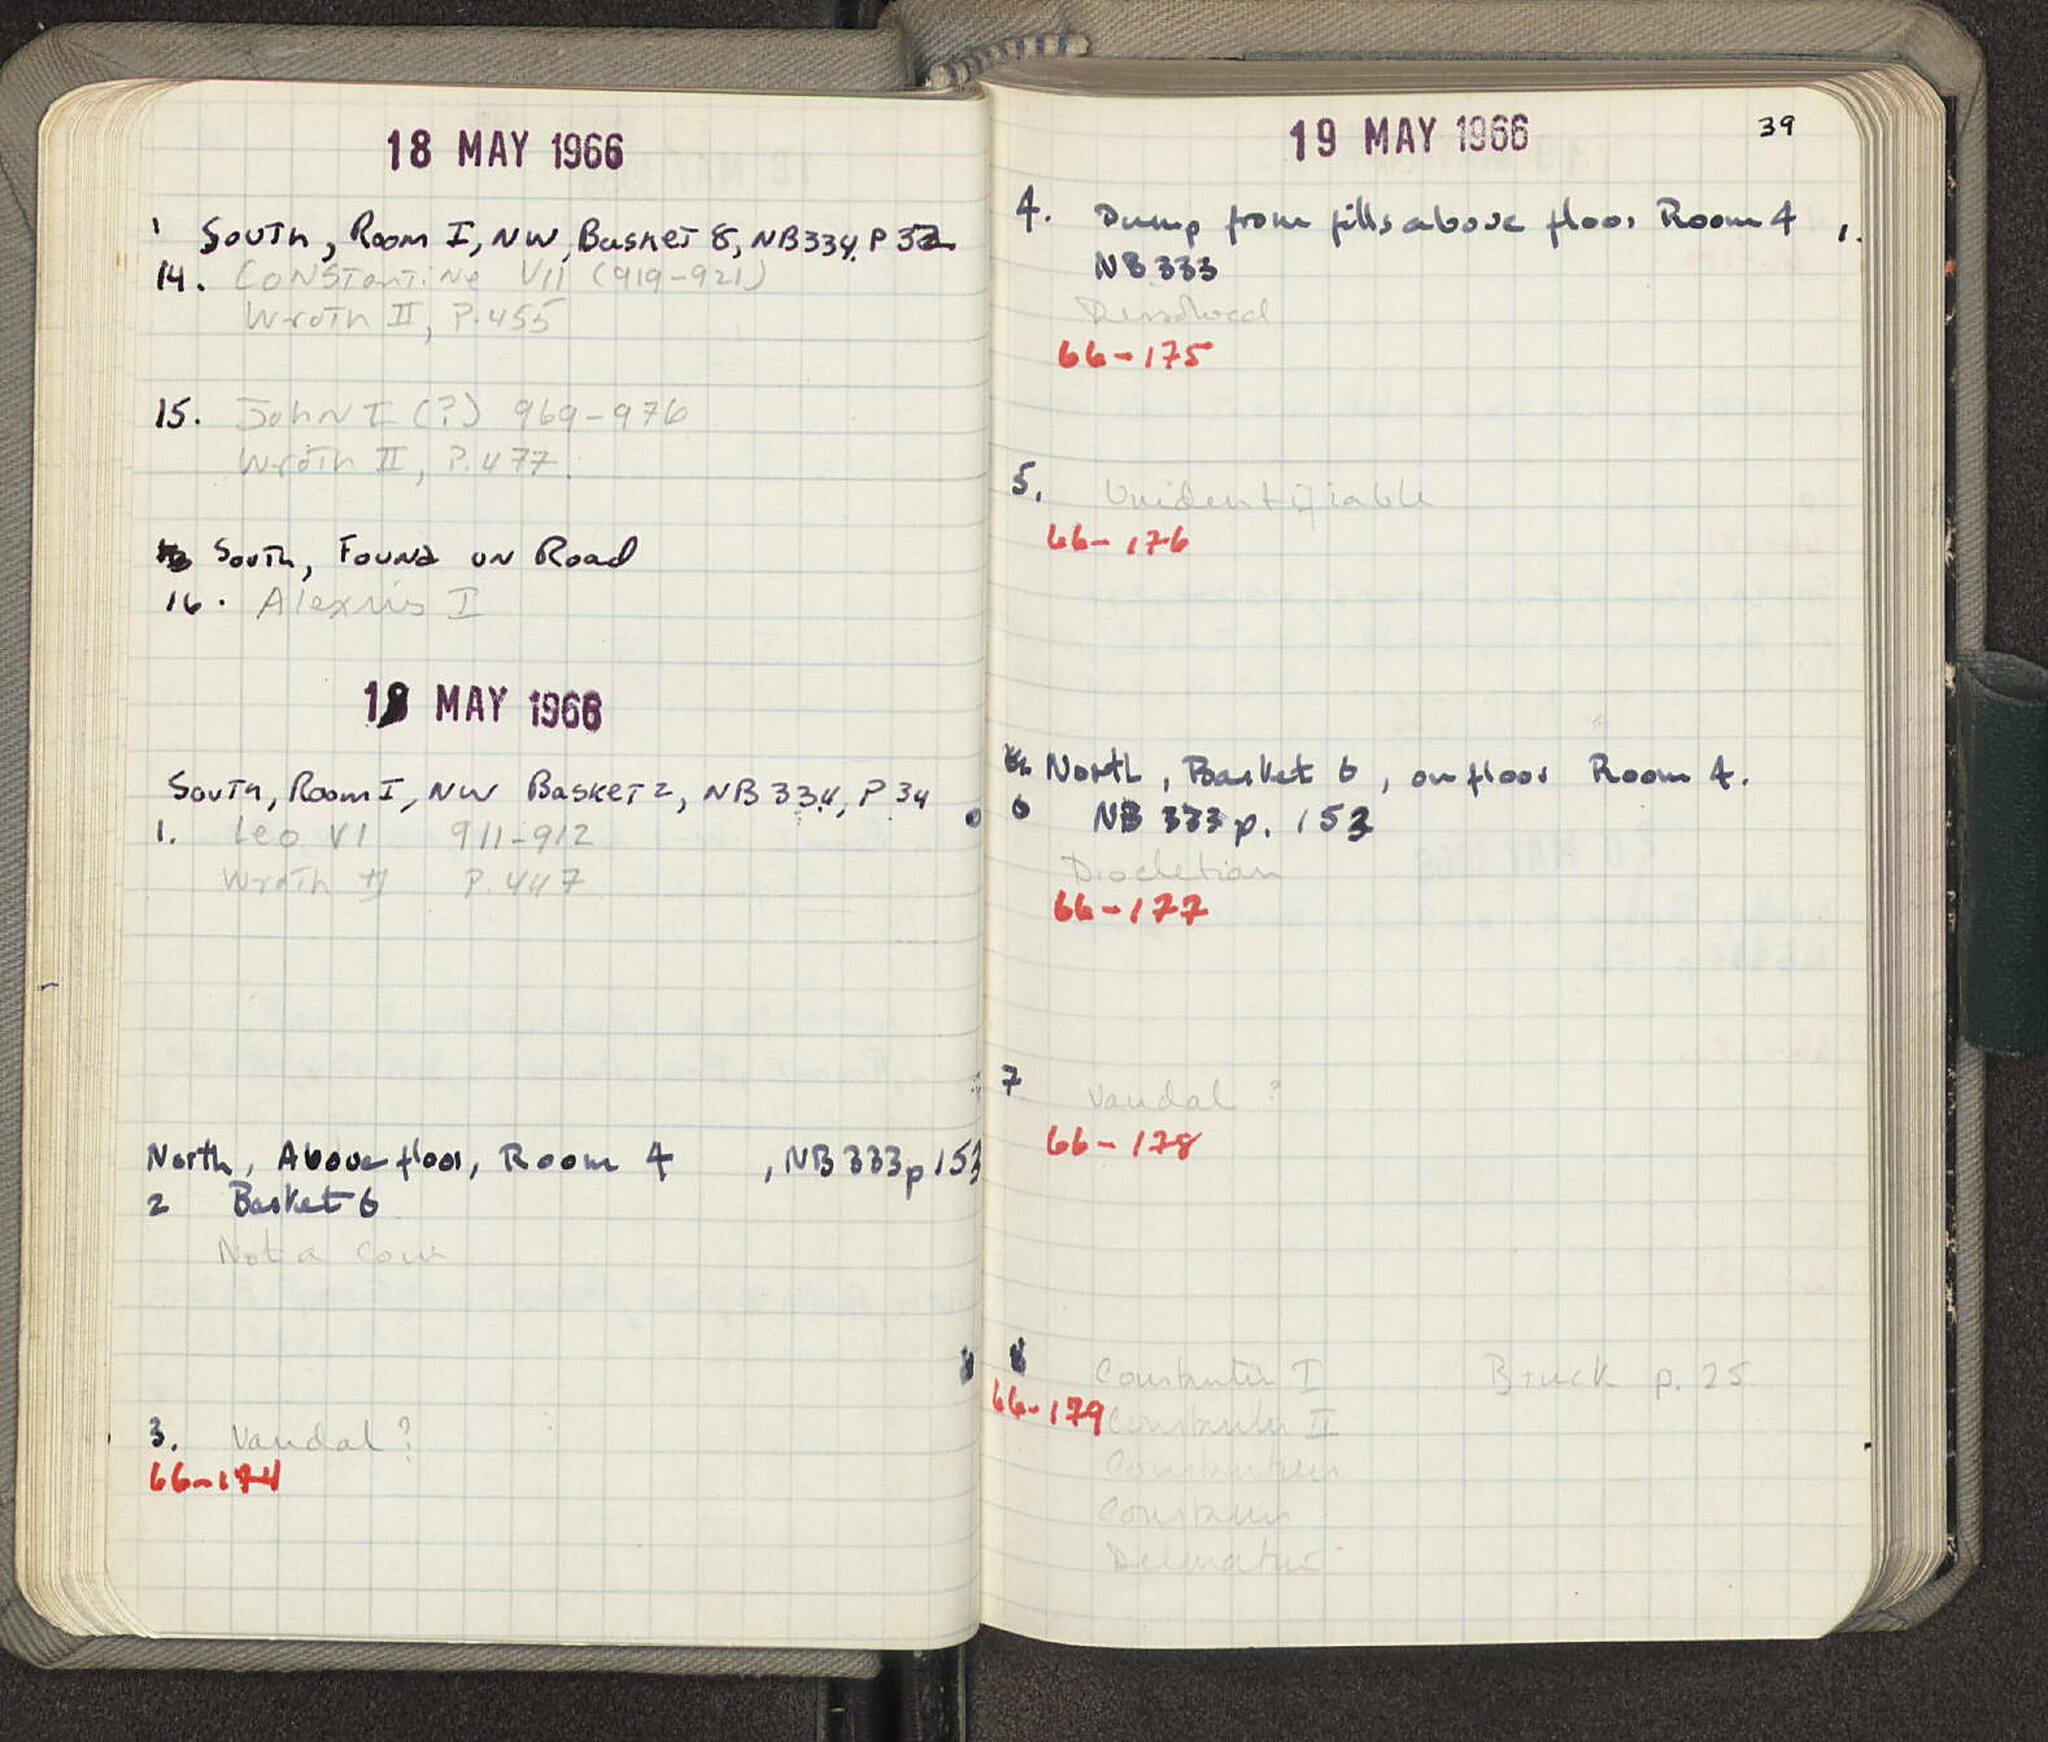 18 MAY 1966
South, Room I, NW, Basket 8, NB334, P 32
14. Constantine VII (919-921)
Wroth II, P. 455
15. John I (?) 969-976
Wroth II, P. 477
South, Found on Road
16. Alexius I
19 MAY 1966
South, Room I, NW Basket 2, NB 334, P 34
1. Leo VI 911-912
Wroth II P. 447
North, Above floor, Room 4, NB 333 p 153
2 Basket 6
Not a coin
3. Vandal?
66-174
19 MAY 1966
39
4. Dump from fills above floor Room 4
NB 333
Dissolved
66-175
5. Unidentifiable
66-176
North, Basket 6, on floor Room 4.
6 NB 333 p. 153
Diocletian
66-177
7 Vandal ?
66-178
8 Constantin I Bruck p. 25
66-179 Constantin II
Constantius
Constans
Delmatius